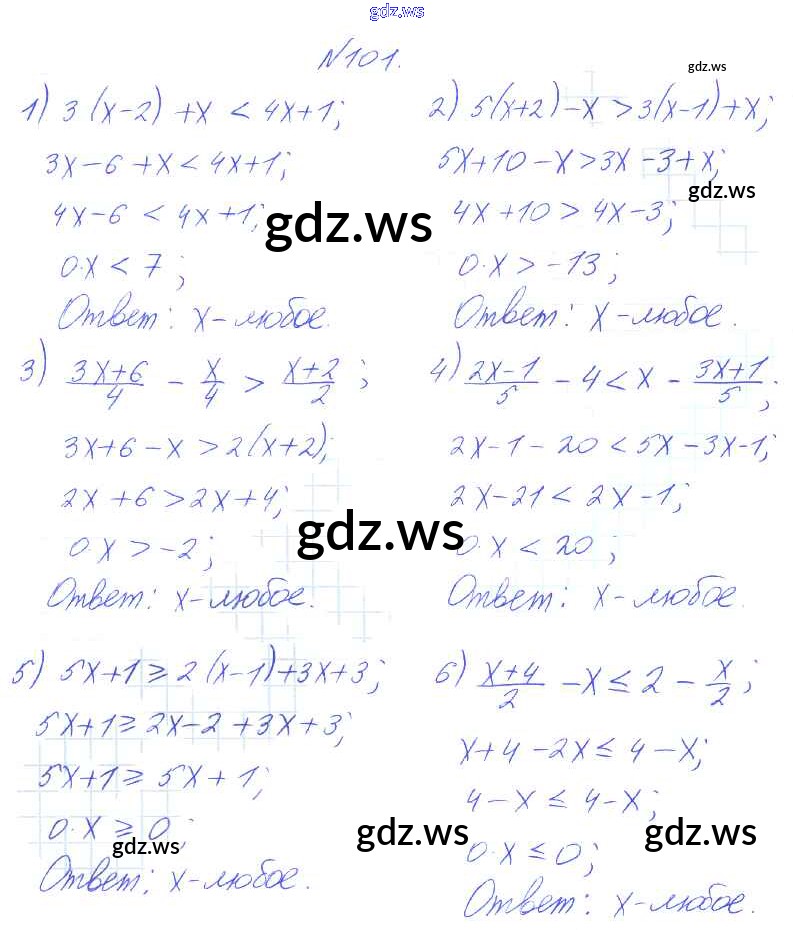 gdz.ws
№101.
gdz.ws
1) 3(x-2)+x < 4x+1;
3x-6+x < 4x+1;
4x-6 < 4x+1;
gdz.ws
0·x < 7;
Ответ: x-любое.
2) 5(x+2)-x > 3(x-1)+x;
5x+10-x > 3x-3+x;
gdz.ws
4x+10 > 4x-3;
0·x > -13;
Ответ: x-любое.
3) (3x+6)/4 - x/4 > (x+2)/2;
3x+6-x > 2(x+2);
2x+6 > 2x+4;
gdz.ws
0·x > -2;
Ответ: x-любое.
4) (2x-1)/5 - 4 < x - (3x+1)/5;
2x-1-20 < 5x-3x-1;
2x-21 < 2x-1;
0·x < 20;
Ответ: x-любое.
5) 5x+1 ≥ 2(x-1)+3x+3;
5x+1 ≥ 2x-2+3x+3;
5x+1 ≥ 5x+1;
0·x ≥ 0;
gdz.ws
Ответ: x-любое.
6) (x+4)/2 - x ≤ 2 - x/2;
x+4-2x ≤ 4-x;
4-x ≤ 4-x;
gdz.ws
gdz.ws
0·x ≤ 0;
Ответ: x-любое.